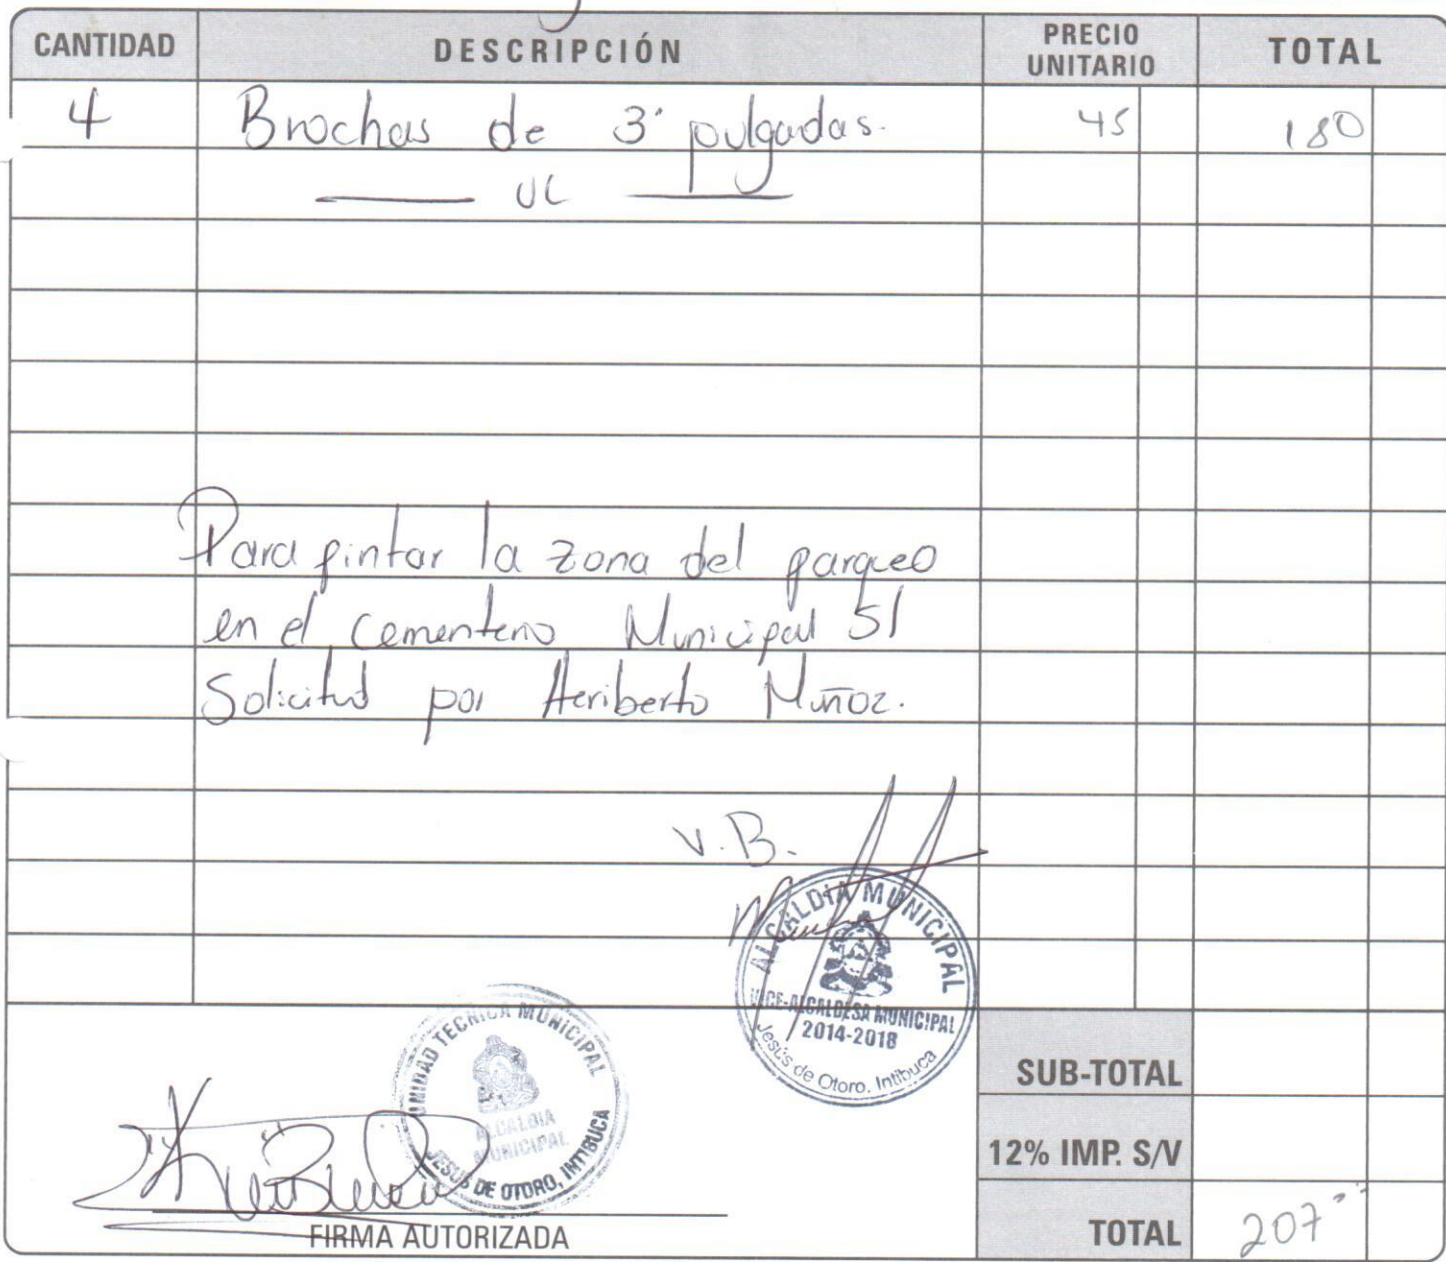 CANTIDAD DESCRIPCIÓN PRECIO UNITARIO TOTAL
4 Brochas de 3" pulgadas. 45 180
UL
Para pintar la zona del parqueo
en el cementerio Municipal S/
Solicitud por Heriberto Muñoz.
V.B.
ALCALDIA MUNICIPAL
VICE-ALCALDESA MUNICIPAL
2014-2018
Jesús de Otoro, Intibuca
UNIDAD TECNICA MUNICIPAL
ALCALDIA
MUNICIPAL
JESUS DE OTORO, INTIBUCA
SUB-TOTAL
12% IMP. S/V
TOTAL 207
FIRMA AUTORIZADA